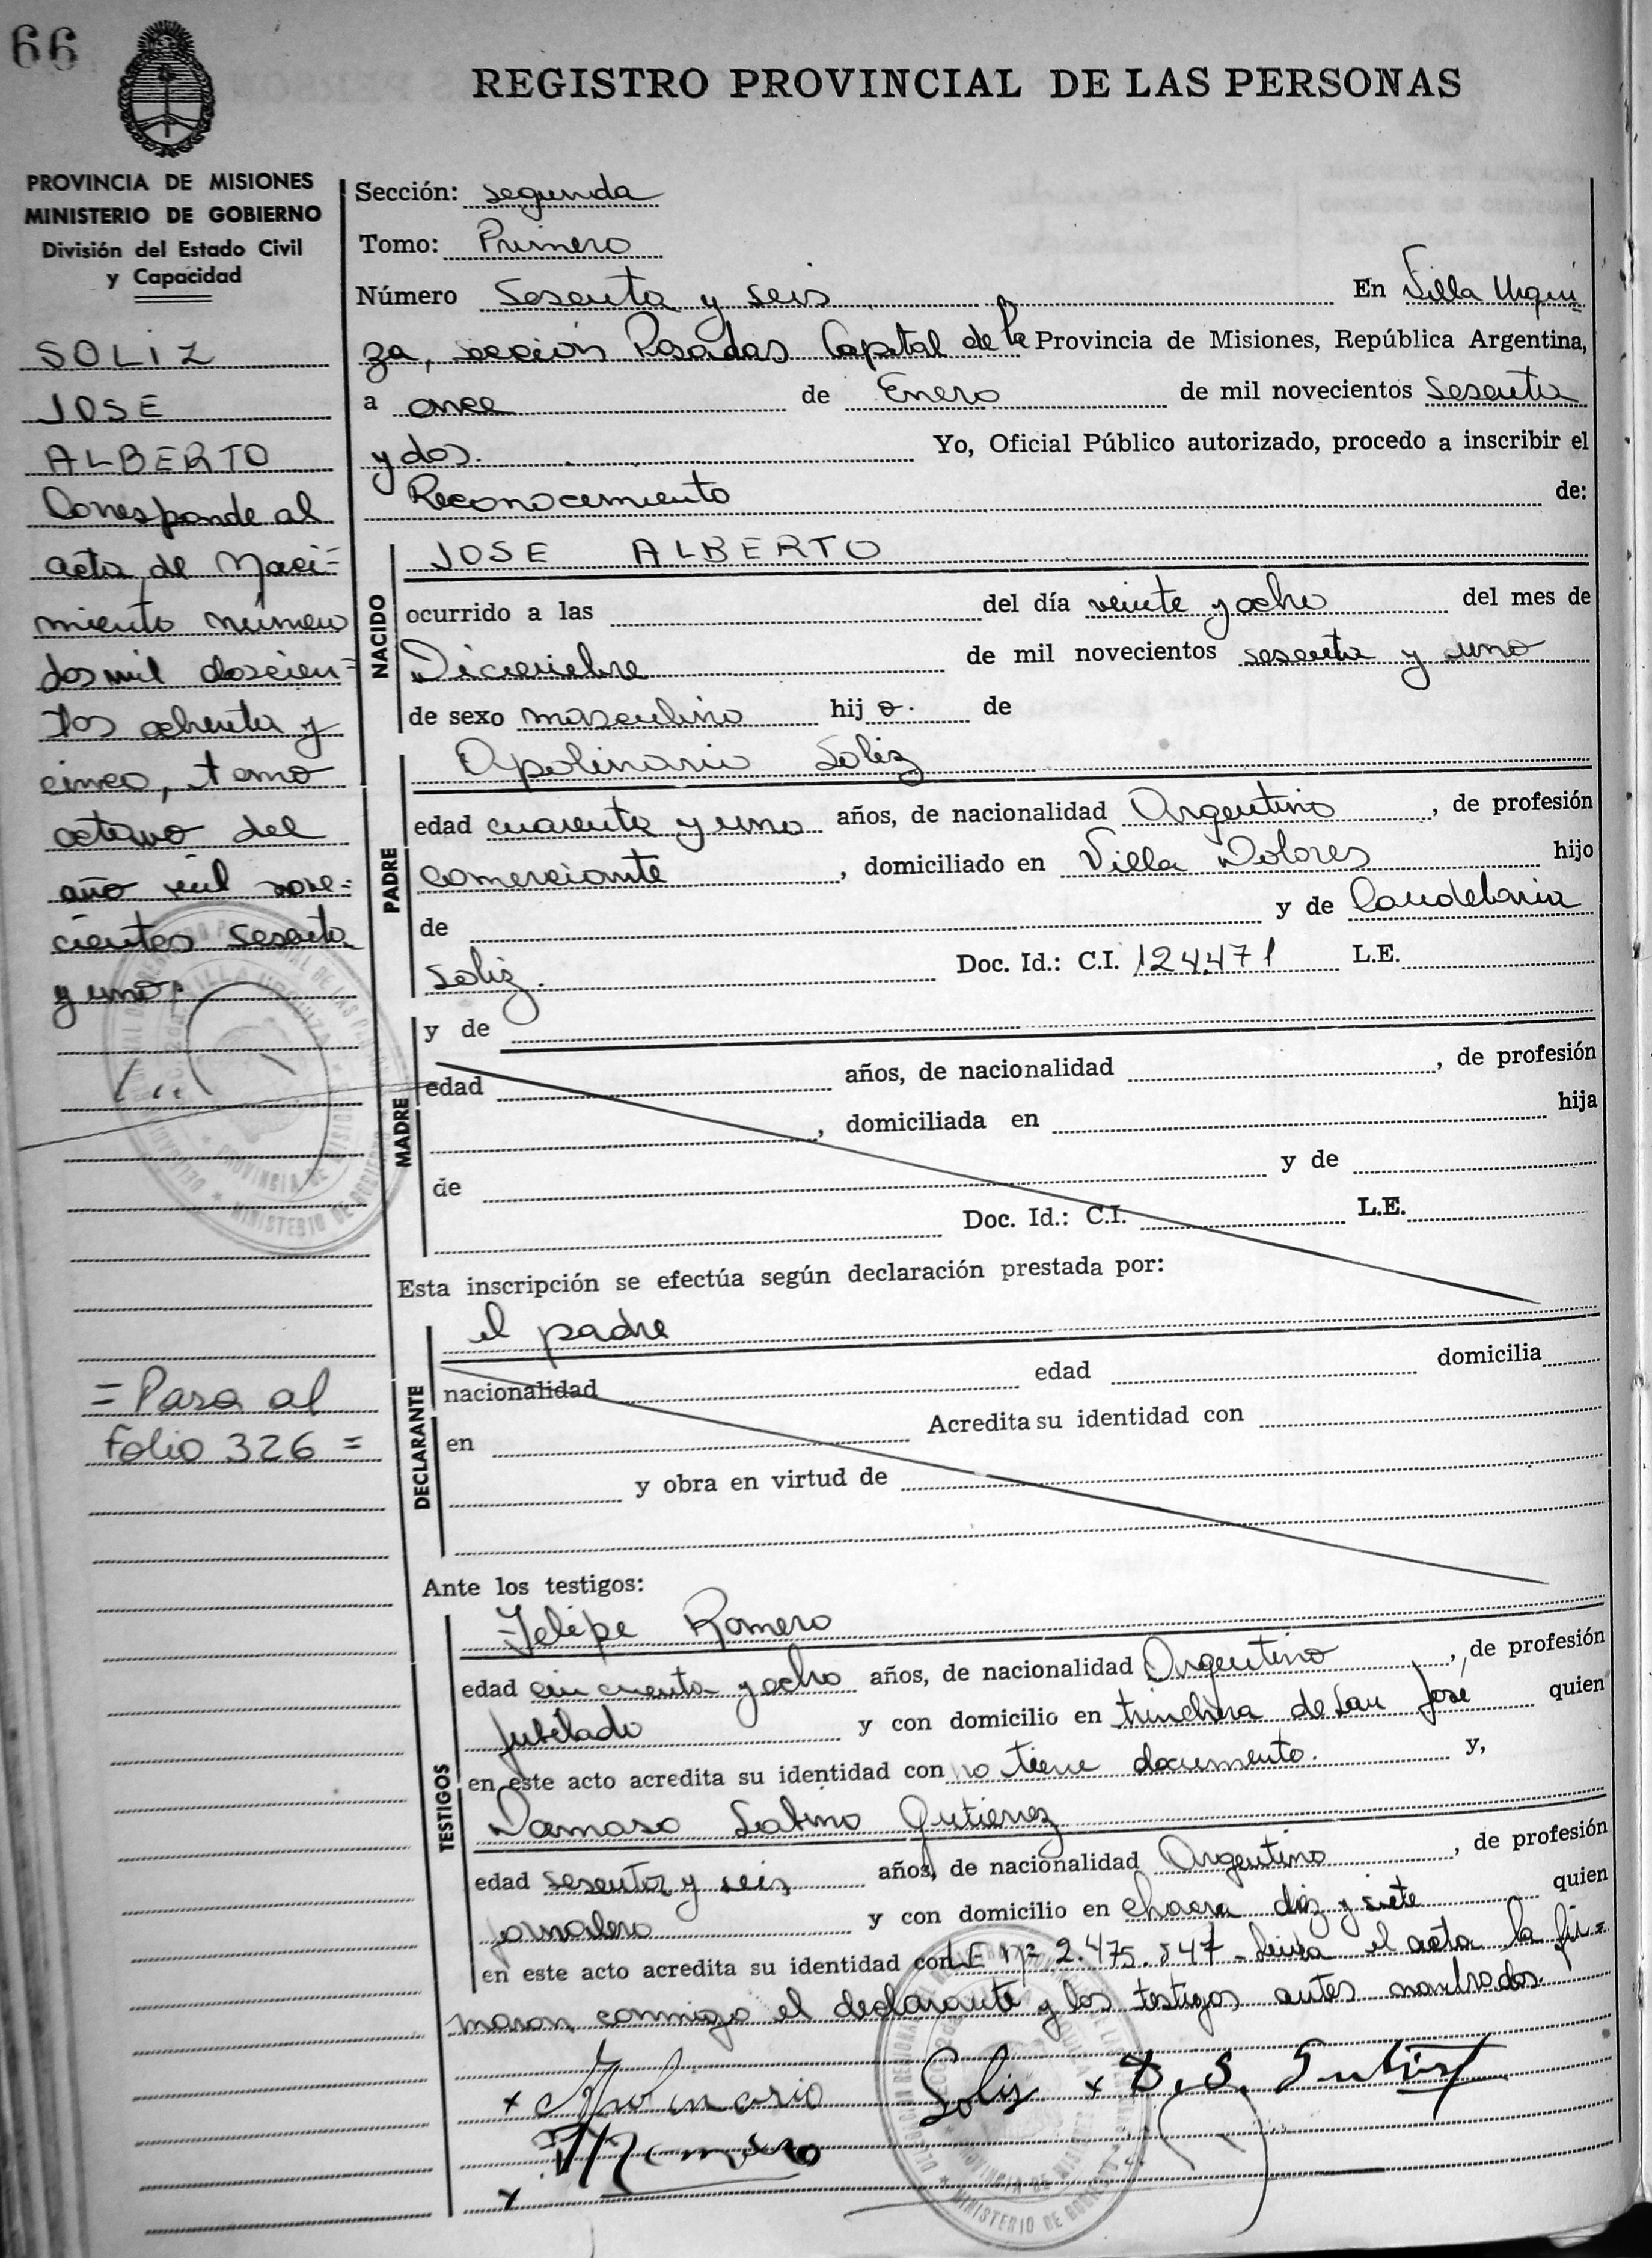 66
REGISTRO PROVINCIAL DE LAS PERSONAS
PROVINCIA DE MISIONES
MINISTERIO DE GOBIERNO
División del Estado Civil
y Capacidad
SOLIZ
JOSE
ALBERTO
Corresponde al
acta de Naci=
miento número
dos mil doscien=
tos ochenta y
cinco, tomo
octavo del
año mil nove=
cientos sesenta
y uno.
= Pasa al
Folio 326 =
Sección: segunda
Tomo: Primero
Número Sesenta y seis En Villa Urqui
za, sección Posadas Capital de la Provincia de Misiones, República Argentina,
a once de Enero de mil novecientos Sesenta
y dos. Yo, Oficial Público autorizado, procedo a inscribir el
Reconocimiento de:
NACIDO
JOSE ALBERTO
ocurrido a las del día veinte y ocho del mes de
Diciembre de mil novecientos sesenta y uno
de sexo masculino hij o. de
PADRE
Apolinario Soliz
edad cuarenta y uno años, de nacionalidad Argentino, de profesión
comerciante, domiciliado en Villa Dolores hijo
de y de Candelaria
Soliz. Doc. Id.: C.I. 124.471 L.E.
MADRE
y de
edad años, de nacionalidad , de profesión
, domiciliada en hija
de y de
Doc. Id.: C.I. L.E.
Esta inscripción se efectúa según declaración prestada por:
DECLARANTE
el padre
nacionalidad edad domicilia
en Acredita su identidad con
y obra en virtud de
Ante los testigos:
TESTIGOS
Felipe Romero
edad cincuenta y ocho años, de nacionalidad Argentino, de profesión
jubilado y con domicilio en trinchera de San José quien
en este acto acredita su identidad con no tiene documento. y,
Damaso Sabino Gutierrez
edad sesenta y seis años, de nacionalidad Argentino, de profesión
jornalero y con domicilio en chacra diez y siete quien
en este acto acredita su identidad con L E nº 2.475.547 - Leida el acta la fir=
maron conmigo el declarante y los testigos antes nombrados.
x Apolinario Soliz x D. S. Gutierrez
x Romero